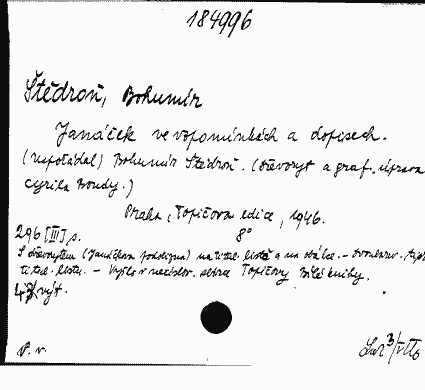 184996
Štědroň, Bohumír
Janáček ve vzpomínkách a dopisech.
(Uspořádal) Bohumír Štědroň. (Dřevoryt a graf. úprava
Cyrila Boudy.)
Praha, Topičova edice, 1946.
296 [III] s. 8°
S dřevorytem (Janáčkova podobizna) na titul. listě a na obálce. – Dvoubarev.
titul. listu. – Vyšlo v nečíslov. sbírce Topičovy bílé knihy.
výt.